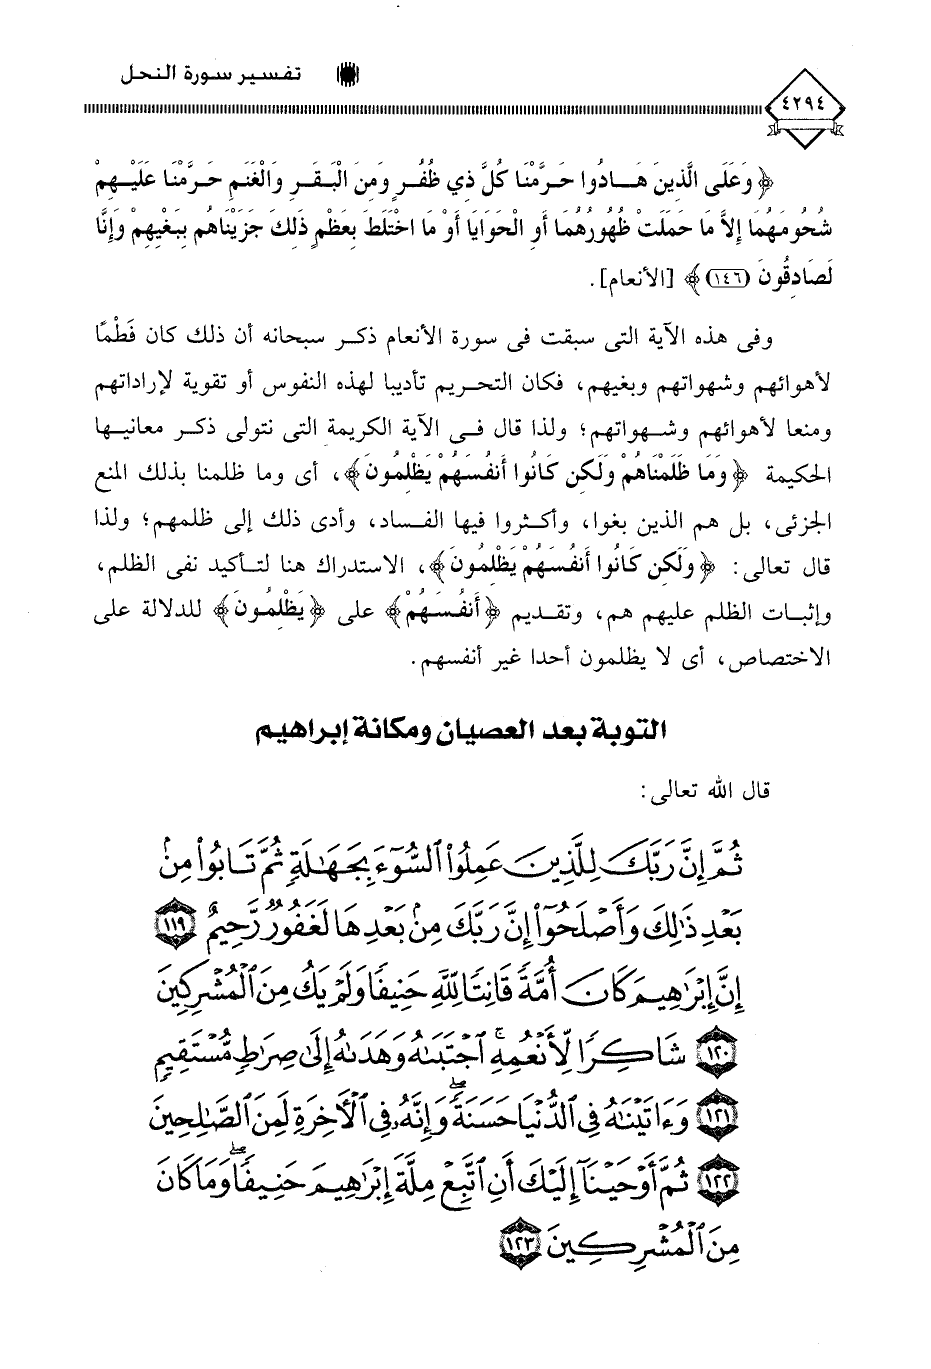 تفسير سورة النحل
٤٢٩٤
﴿ وَعَلَى الَّذِينَ هَادُوا حَرَّمْنَا كُلَّ ذِي ظُفُرٍ وَمِنَ الْبَقَرِ وَالْغَنَمِ حَرَّمْنَا عَلَيْهِمْ
شُحُومَهُمَا إِلاَّ مَا حَمَلَتْ ظُهُورُهُمَا أَوِ الْحَوَايَا أَوْ مَا اخْتَلَطَ بِعَظْمٍ ذَلِكَ جَزَيْنَاهُم بِبَغْيِهِمْ وَإِنَّا
لَصَادِقُونَ (١٤٦) ﴾ [الأنعام].
وفى هذه الآية التى سبقت فى سورة الأنعام ذكر سبحانه أن ذلك كان فَطْمًا
لأهوائهم وشهواتهم وبغيهم، فكان التحريم تأديبا لهذه النفوس أو تقوية لإراداتهم
ومنعا لأهوائهم وشهواتهم؛ ولذا قال فى الآية الكريمة التى نتولى ذكر معانيها
الحكيمة ﴿ وَمَا ظَلَمْنَاهُمْ وَلَكِن كَانُوا أَنفُسَهُمْ يَظْلِمُونَ ﴾، أى وما ظلمنا بذلك المنع
الجزئى، بل هم الذين بغوا، وأكثروا فيها الفساد، وأدى ذلك إلى ظلمهم؛ ولذا
قال تعالى: ﴿ وَلَكِن كَانُوا أَنفُسَهُمْ يَظْلِمُونَ ﴾، الاستدراك هنا لتأكيد نفى الظلم،
وإثبات الظلم عليهم هم، وتقديم ﴿ أَنفُسَهُمْ ﴾ على ﴿ يَظْلِمُونَ ﴾ للدلالة على
الاختصاص، أى لا يظلمون أحدا غير أنفسهم.
التوبة بعد العصيان ومكانة إبراهيم
قال الله تعالى:
ثُمَّ إِنَّ رَبَّكَ لِلَّذِينَ عَمِلُوا۟ ٱلسُّوٓءَ بِجَهَـٰلَةٍ ثُمَّ تَابُوا۟ مِنۢ
بَعْدِ ذَٰلِكَ وَأَصْلَحُوٓا۟ إِنَّ رَبَّكَ مِنۢ بَعْدِهَا لَغَفُورٌ رَّحِيمٌ ١١٩
إِنَّ إِبْرَٰهِيمَ كَانَ أُمَّةً قَانِتًا لِّلَّهِ حَنِيفًا وَلَمْ يَكُ مِنَ ٱلْمُشْرِكِينَ
١٢٠ شَاكِرًا لِّأَنْعُمِهِ ۚ ٱجْتَبَىٰهُ وَهَدَىٰهُ إِلَىٰ صِرَٰطٍ مُّسْتَقِيمٍ
١٢١ وَءَاتَيْنَـٰهُ فِى ٱلدُّنْيَا حَسَنَةً ۖ وَإِنَّهُۥ فِى ٱلْـَٔاخِرَةِ لَمِنَ ٱلصَّـٰلِحِينَ
١٢٢ ثُمَّ أَوْحَيْنَآ إِلَيْكَ أَنِ ٱتَّبِعْ مِلَّةَ إِبْرَٰهِيمَ حَنِيفًا ۖ وَمَا كَانَ
مِنَ ٱلْمُشْرِكِينَ ١٢٣